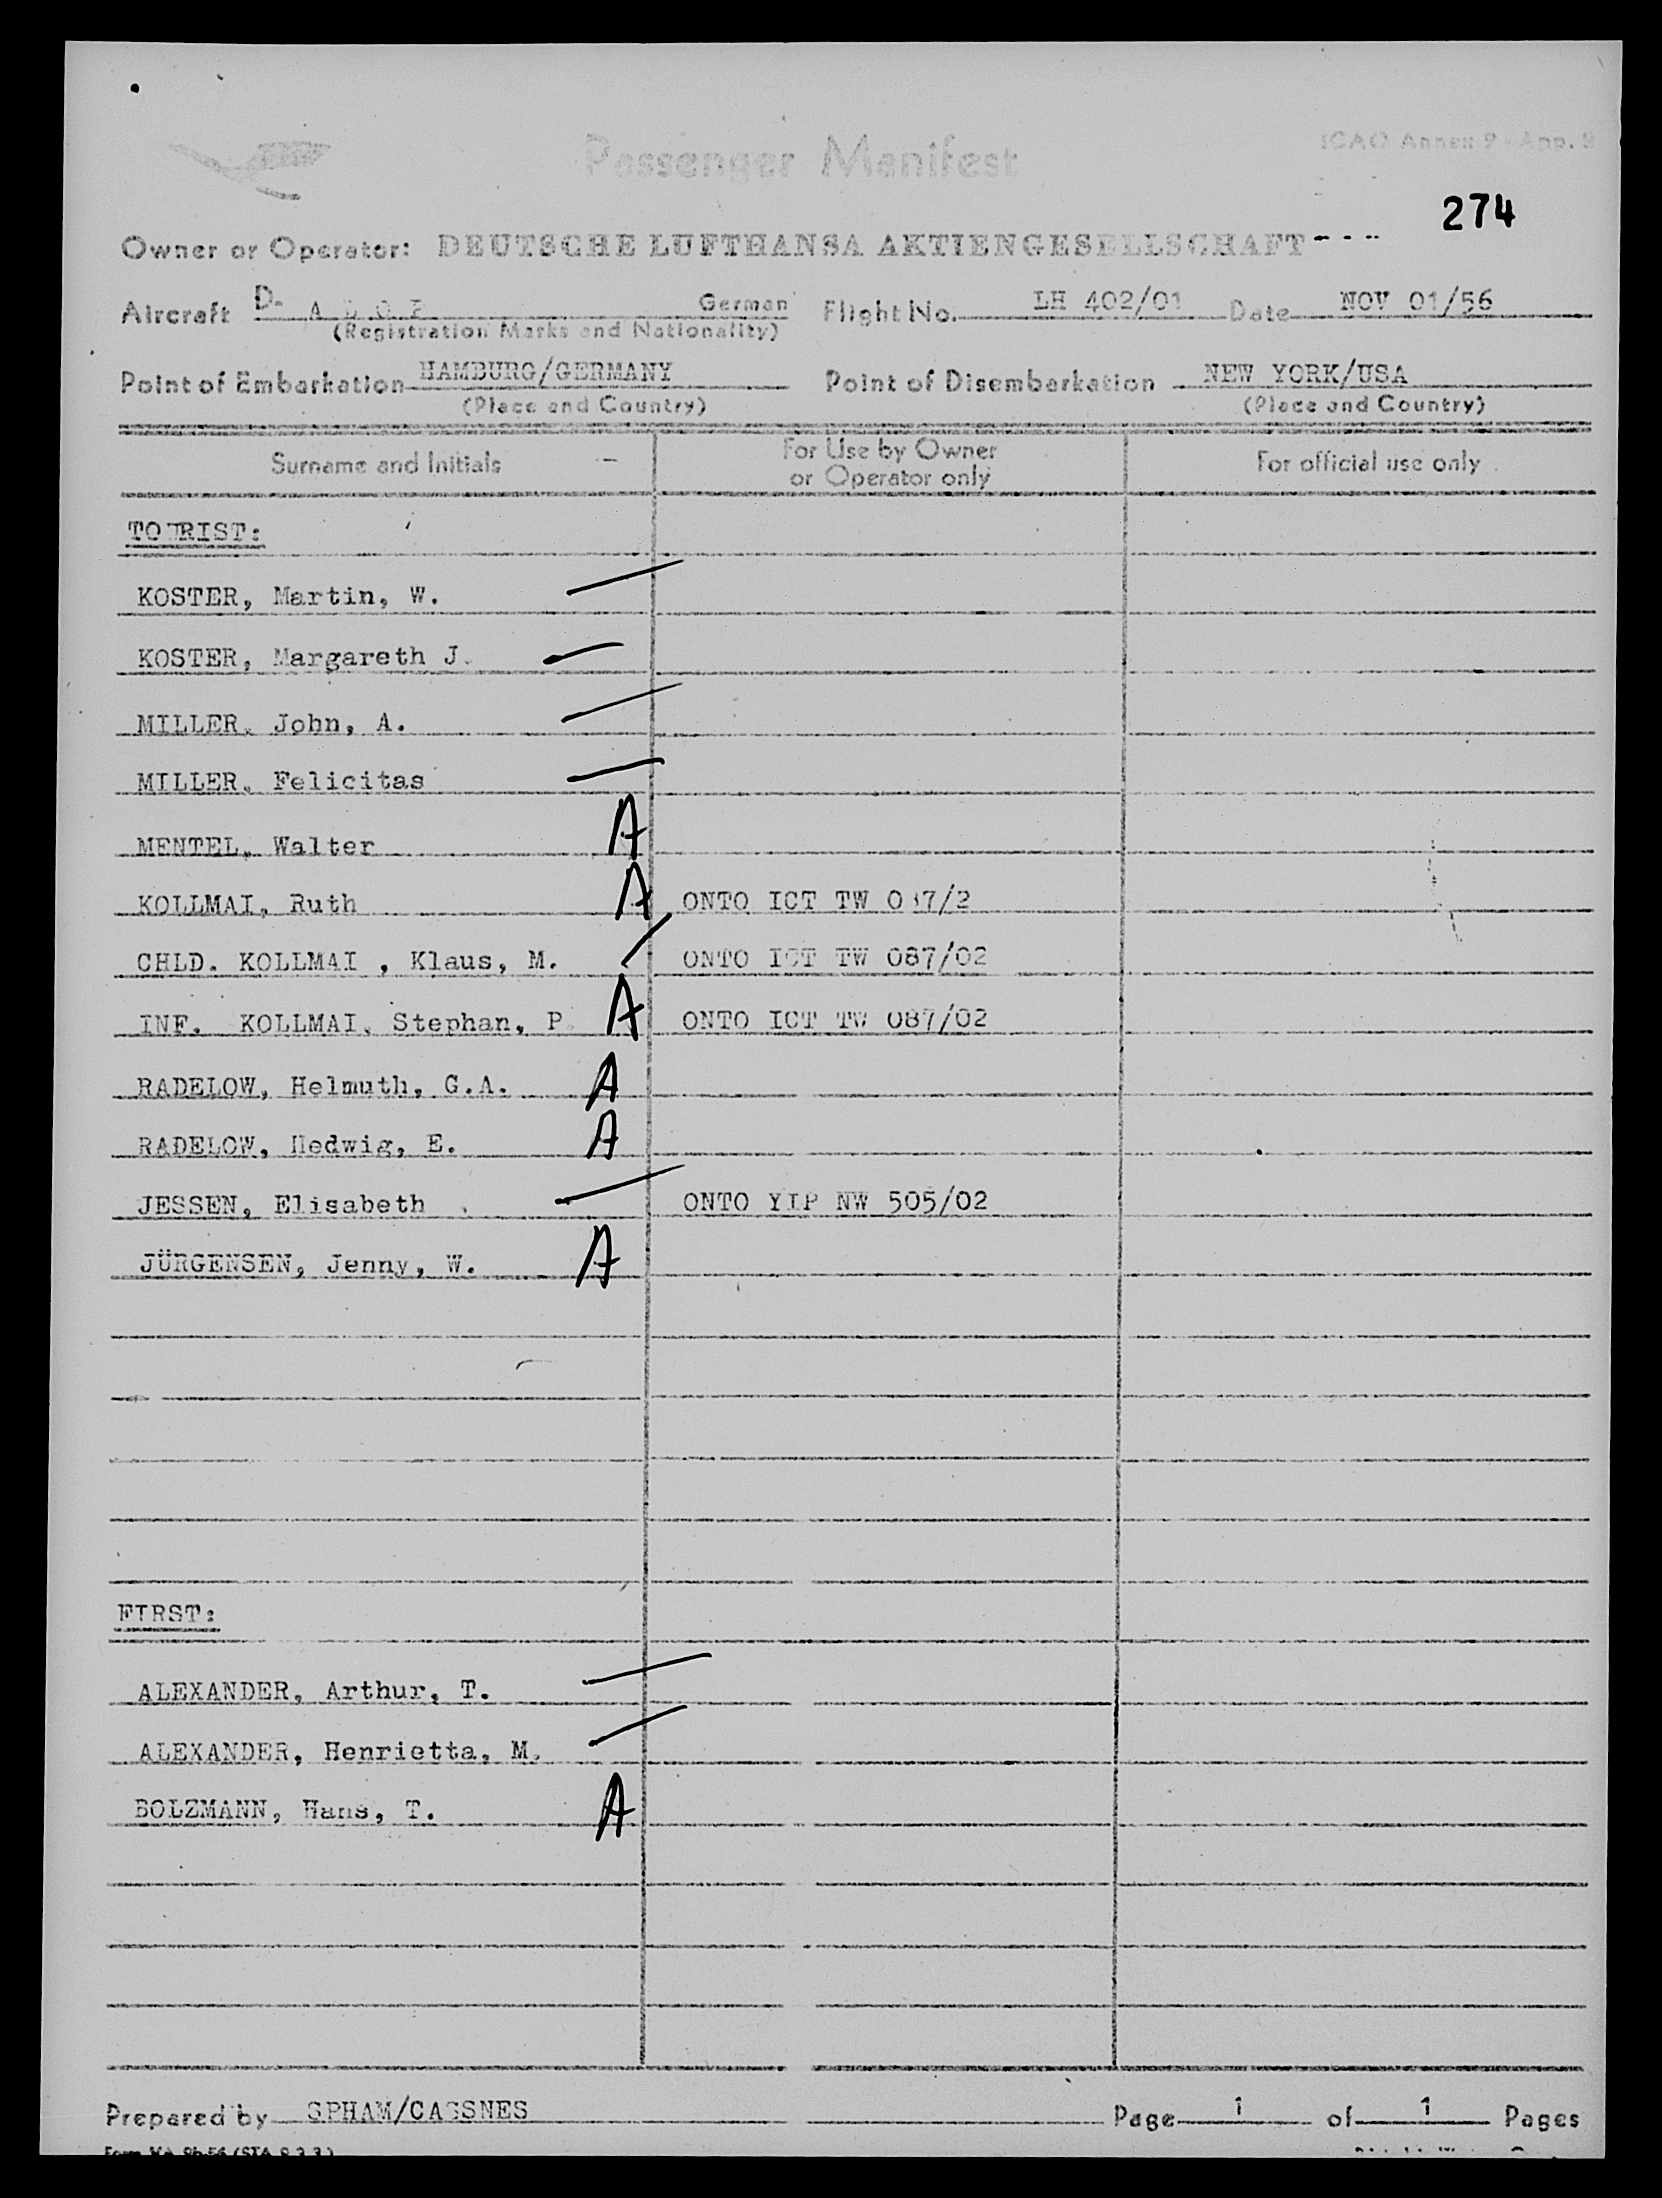 Passenger Manifest
ICAO Annex 9 App. 9
274
Owner or Operator: DEUTSCHE LUFTHANSA AKTIENGESELLSCHAFT----
Aircraft D- A German Flight No. LH 402/01 Date NOV 01/56
(Registration Marks and Nationality)
Point of Embarkation HAMBURG/GERMANY Point of Disembarkation NEW YORK/USA
(Place and Country) (Place and Country)
Surname and Initials - For Use by Owner or Operator only For official use only
TOURIST:
KOSTER, Martin, W.
KOSTER, Margareth J.
MILLER, John, A.
MILLER, Felicitas
MENTEL, Walter A
KOLLMAI, Ruth A ONTO ICT TW 087/2
CHLD. KOLLMAI , Klaus, M. ONTO ICT TW 087/02
INF. KOLLMAI, Stephan, P. A ONTO ICT TW 087/02
RADELOW, Helmuth, G.A. A
RADELOW, Hedwig, E. A
JESSEN, Elisabeth ONTO YIP NW 505/02
JÜRGENSEN, Jenny, W. A
FIRST:
ALEXANDER, Arthur, T.
ALEXANDER, Henrietta, M.
BOLZMANN, Hans, T. A
Prepared by SPHAM/CASSNES Page 1 of 1 Pages